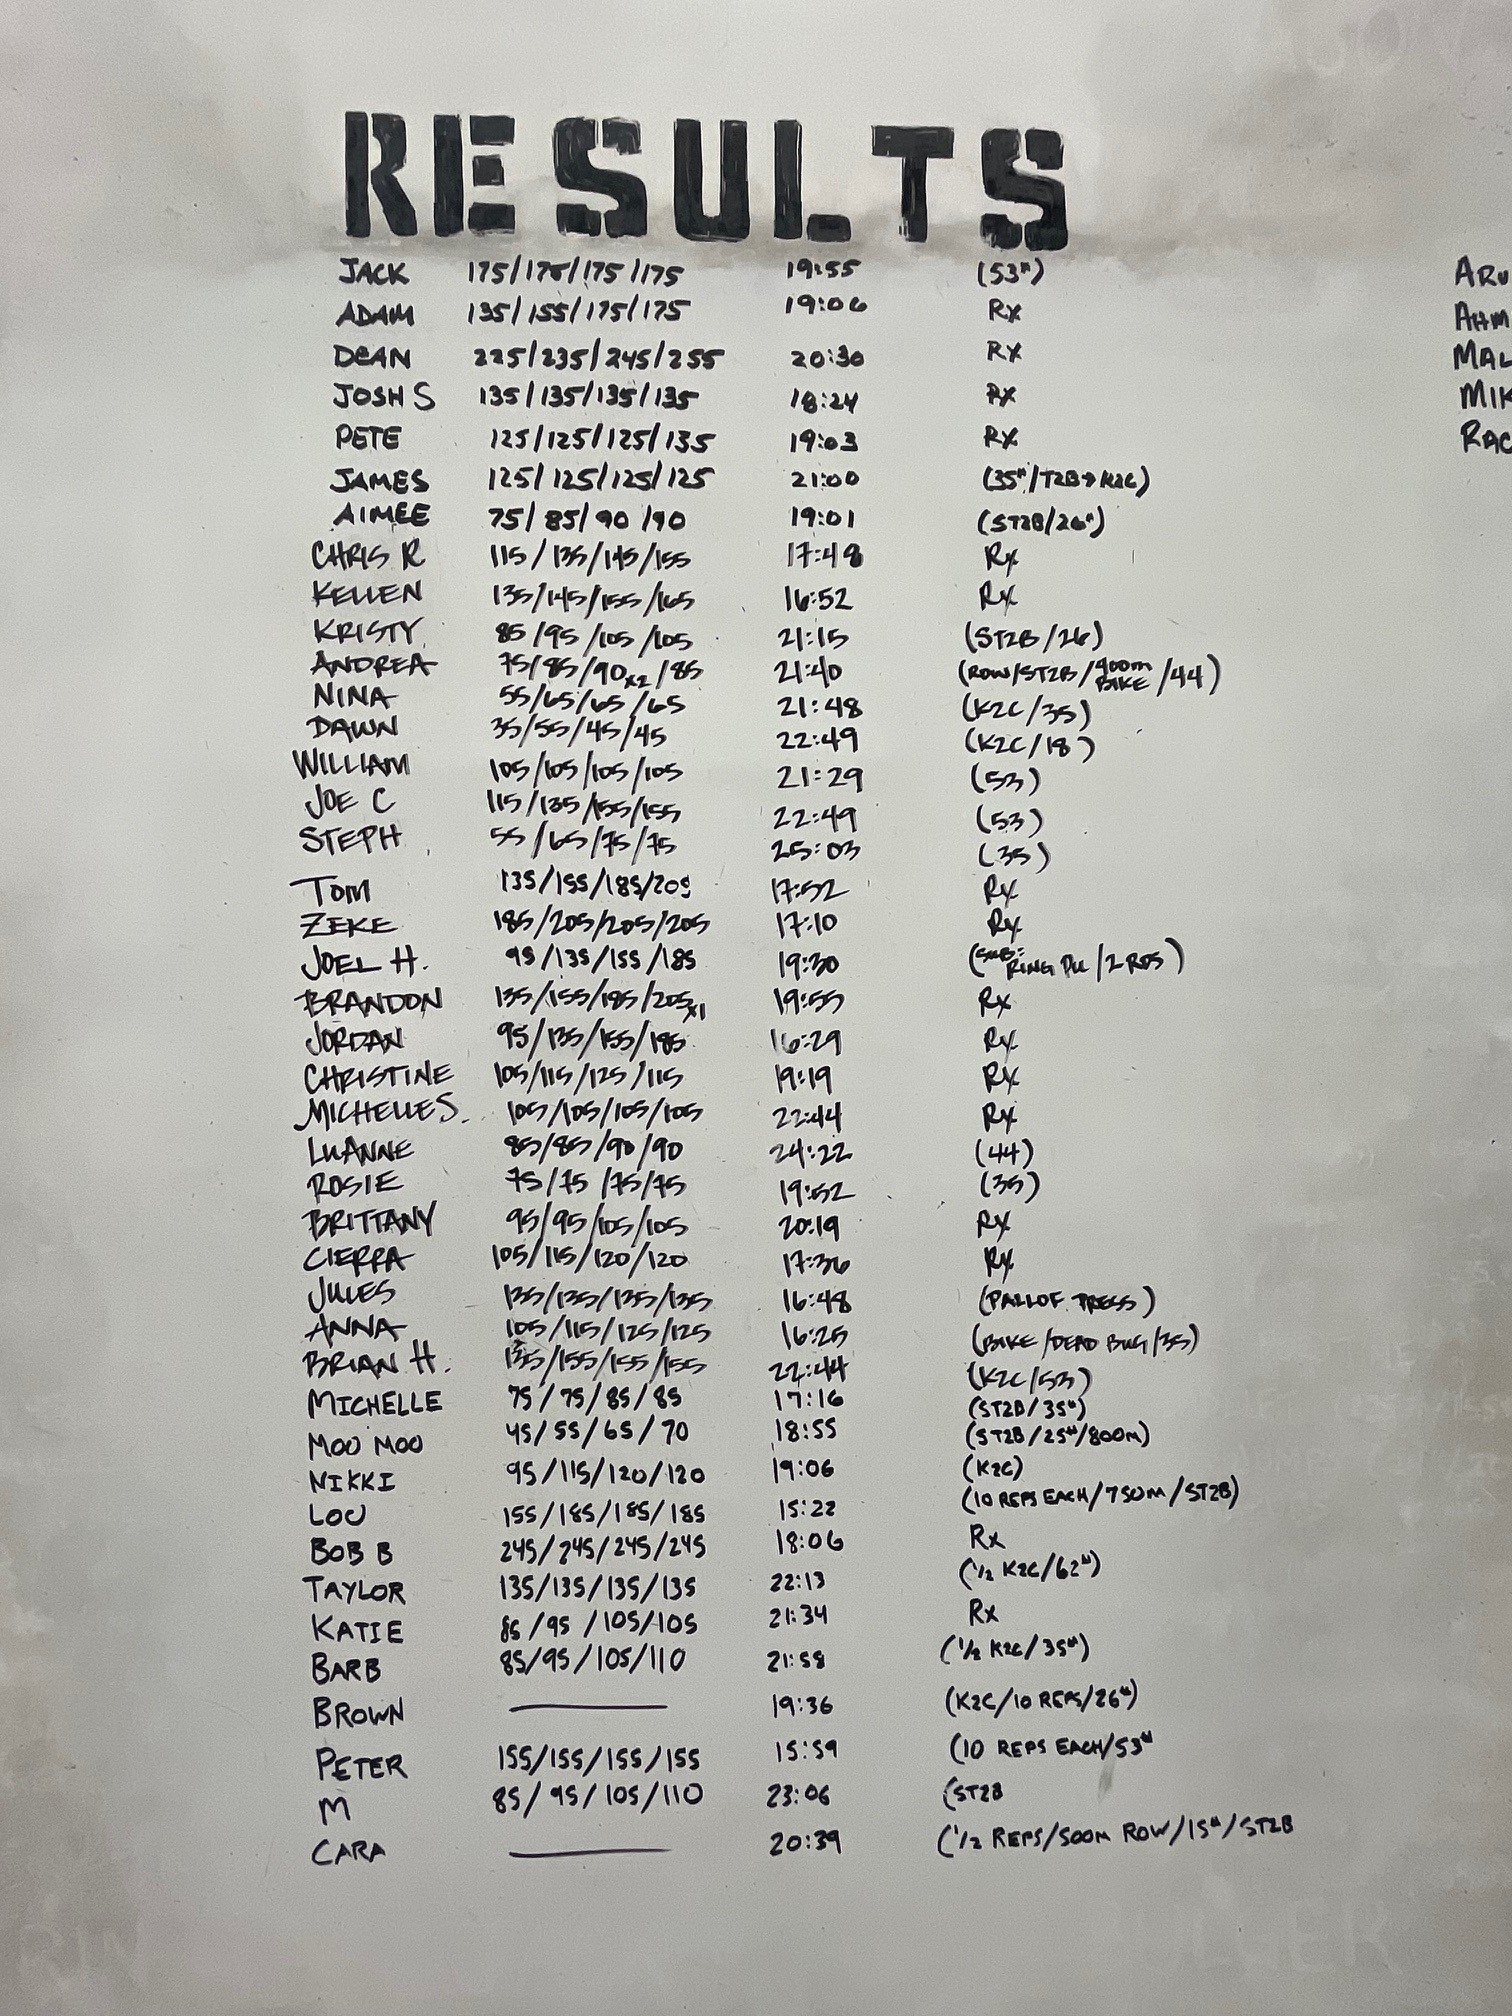 RESULTS
JACK 175/175/175/175 19:55 (53#)
ADAM 135/155/175/175 19:06 Rx
DEAN 225/235/245/255 20:30 Rx
JOSH S 135/135/135/135 18:24 Rx
PETE 125/125/125/135 19:03 Rx
JAMES 125/125/125/125 21:00 (35#/T2B→K2C)
AIMEE 75/85/90/90 19:01 (ST2B/26#)
CHRIS R 115/135/145/155 17:48 Rx
KELLEN 135/145/155/165 16:52 Rx
KRISTY 85/95/105/105 21:15 (ST2B/26)
ANDREA 75/85/90x2/85 21:40 (ROW/ST2B/400m BIKE/44)
NINA 55/65/65/65 21:48 (K2C/35)
DAWN 35/55/45/45 22:49 (K2C/18)
WILLIAM 105/105/105/105 21:29 (53)
JOE C 115/135/155/155 22:49 (53)
STEPH 55/65/75/75 25:03 (35)
TOM 135/155/185/205 17:52 Rx
ZEKE 185/205/205/205 17:10 Rx
JOEL H. 95/135/155/185 19:30 (SUB: RING PU/2 RDS)
BRANDON 135/155/185/205x1 19:55 Rx
JORDAN 95/135/155/185 16:29 Rx
CHRISTINE 105/115/125/115 19:19 Rx
MICHELLE S. 105/105/105/105 22:44 Rx
LUANNE 85/85/90/90 24:22 (44)
ROSIE 75/75/75/75 19:52 (35)
BRITTANY 95/95/105/105 20:19 Rx
CIERRA 105/115/120/120 17:36 Rx
JULES 135/135/135/135 16:48 (PALLOF PRESS)
ANNA 105/115/125/125 16:25 (BIKE/DEAD BUG/35)
BRIAN H. 135/155/155/155 22:44 (K2C/53)
MICHELLE 75/75/85/85 17:16 (ST2B/35#)
MOO MOO 45/55/65/70 18:55 (ST2B/25#/800M)
NIKKI 95/115/120/120 19:06 (K2C)
LOU 155/185/185/185 15:22 (10 REPS EACH/750M/ST2B)
BOB B 245/245/245/245 18:06 Rx
TAYLOR 135/135/135/135 22:13 (1/2 K2C/62#)
KATIE 85/95/105/105 21:34 Rx
BARB 85/95/105/110 21:58 (1/2 K2C/35#)
BROWN — 19:36 (K2C/10 REPS/26#)
PETER 155/155/155/155 15:59 (10 REPS EACH/53#
M 85/95/105/110 23:06 (ST2B
CARA — 20:39 (1/2 REPS/500M ROW/15#/ST2B
ARU
AHM
MAL
MIK
RAC